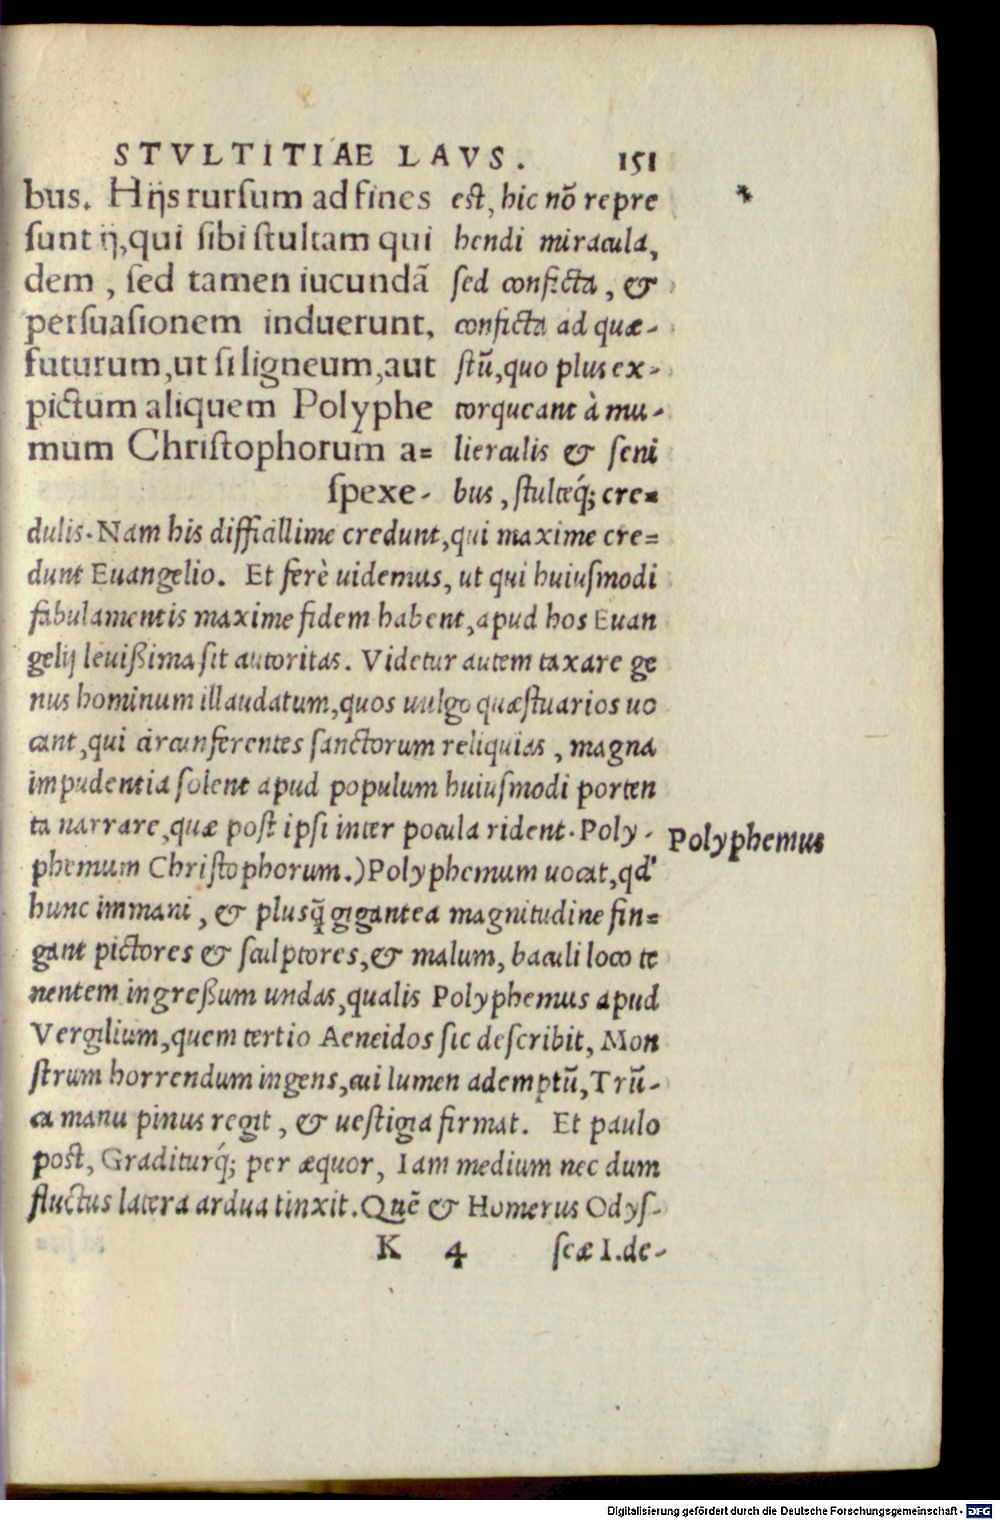 STVLTITIAE LAVS. 151
bus. Hijs rursum ad fines
sunt ij, qui sibi stultam qui
dem, sed tamen iucundã
persuasionem induerunt,
futurum, ut si ligneum, aut
pictum aliquem Polyphe
mum Christophorum a=
spexe-
est, hic nõ repre
hendi miracula,
sed conficta, &
conficta ad quæ-
stũ, quo plus ex-
torqueant à mu-
lierculis & seni
bus, stulteq́; cre=
dulis. Nam his difficillime credunt, qui maxime cre=
dunt Euangelio. Et ferè uidemus, ut qui huiusmodi
fabulamentis maxime fidem habent, apud hos Euan
gelij leuißima sit autoritas. Videtur autem taxare ge
nus hominum illaudatum, quos uulgo quæstuarios uo
cant, qui circunferentes sanctorum reliquias, magna
impudentia solent apud populum huiusmodi porten
ta narrare, quæ post ipsi inter pocula rident. Poly-
phemum Christophorum.) Polyphemum uocat, qd'
hunc immani, & plusq̃ gigantea magnitudine fin=
gant pictores & sculptores, & malum, baculi loco te
nentem ingreßum undas, qualis Polyphemus apud
Vergilium, quem tertio Aeneidos sic describit, Mon
strum horrendum ingens, cui lumen ademptũ, Trũ-
ca manu pinus regit, & uestigia firmat. Et paulo
post, Graditurq́; per æquor, Iam medium nec dum
fluctus latera ardua tinxit. Quẽ & Homerus Odys-
K 4 seæ I. de-
Polyphemus
Digitalisierung gefördert durch die Deutsche Forschungsgemeinschaft - DFG